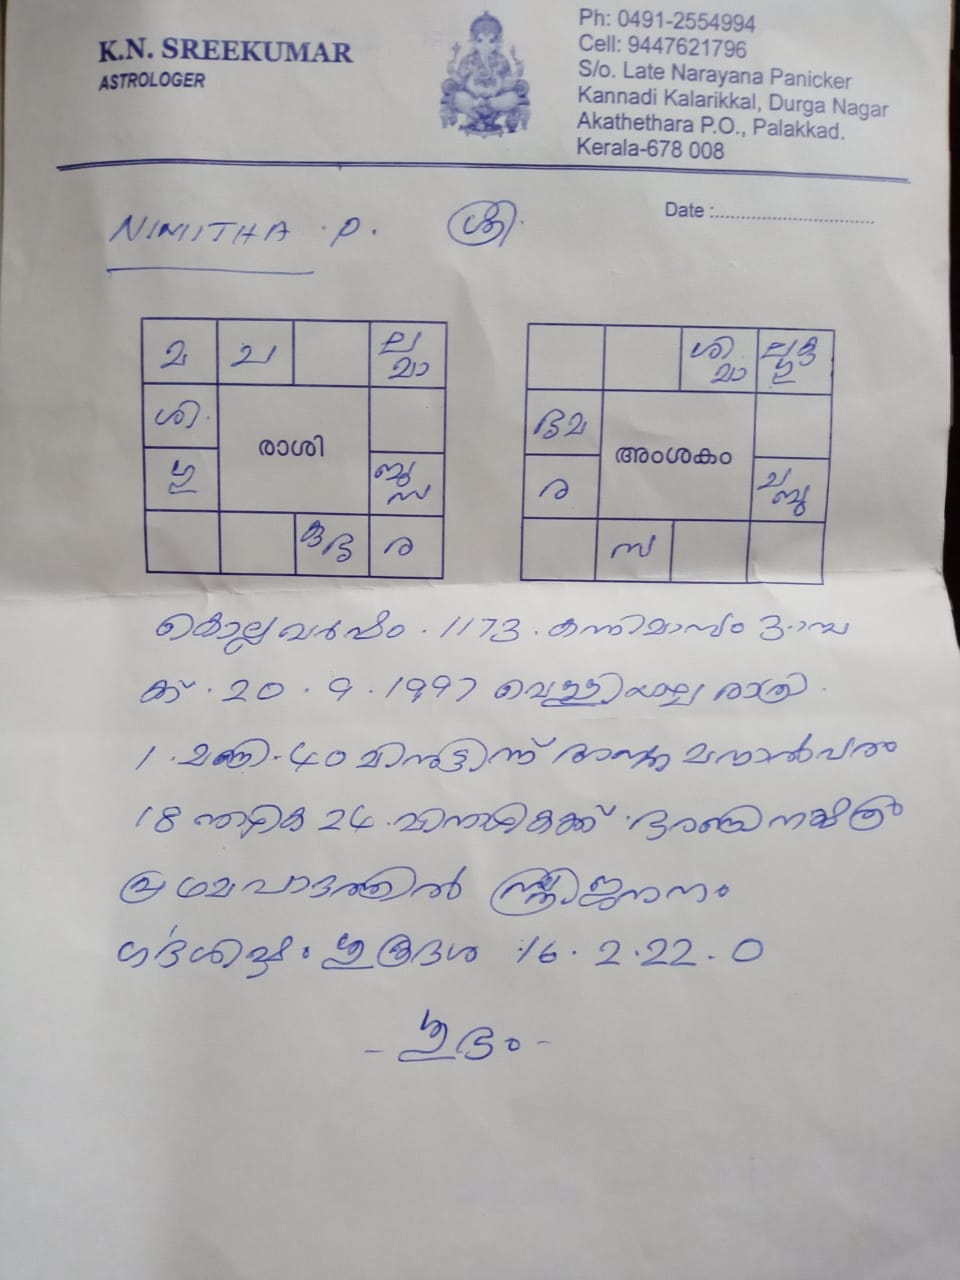 K.N. SREEKUMAR
ASTROLOGER
Ph: 0491-2554994
Cell: 9447621796
S/o. Late Narayana Panicker
Kannadi Kalarikkal, Durga Nagar
Akathethara P.O., Palakkad.
Kerala-678 008
Date :
NIMITHA . P. ശ്രീ
മ ച ല മാ
ശി
ഗു
രാശി
ബു സ
കു ര
ശി മാ ല ഗു
അംശകം
ര
ബു
സ
കൊല്ലവർഷം . 1173 . കന്നിമാസം
ക്ക് . 20 . 9 . 1997 വെള്ളിയാഴ്ച രാത്രി .
1 . മണി . 40 മിനുട്ടിന്
18 നാഴിക 24 . വിനാഴികക്ക് . ഭരണി നക്ഷത്രം
പ്രഥമ പാദത്തിൽ സ്ത്രീജനനം
16 . 2 . 22 . 0
- ശുഭം -